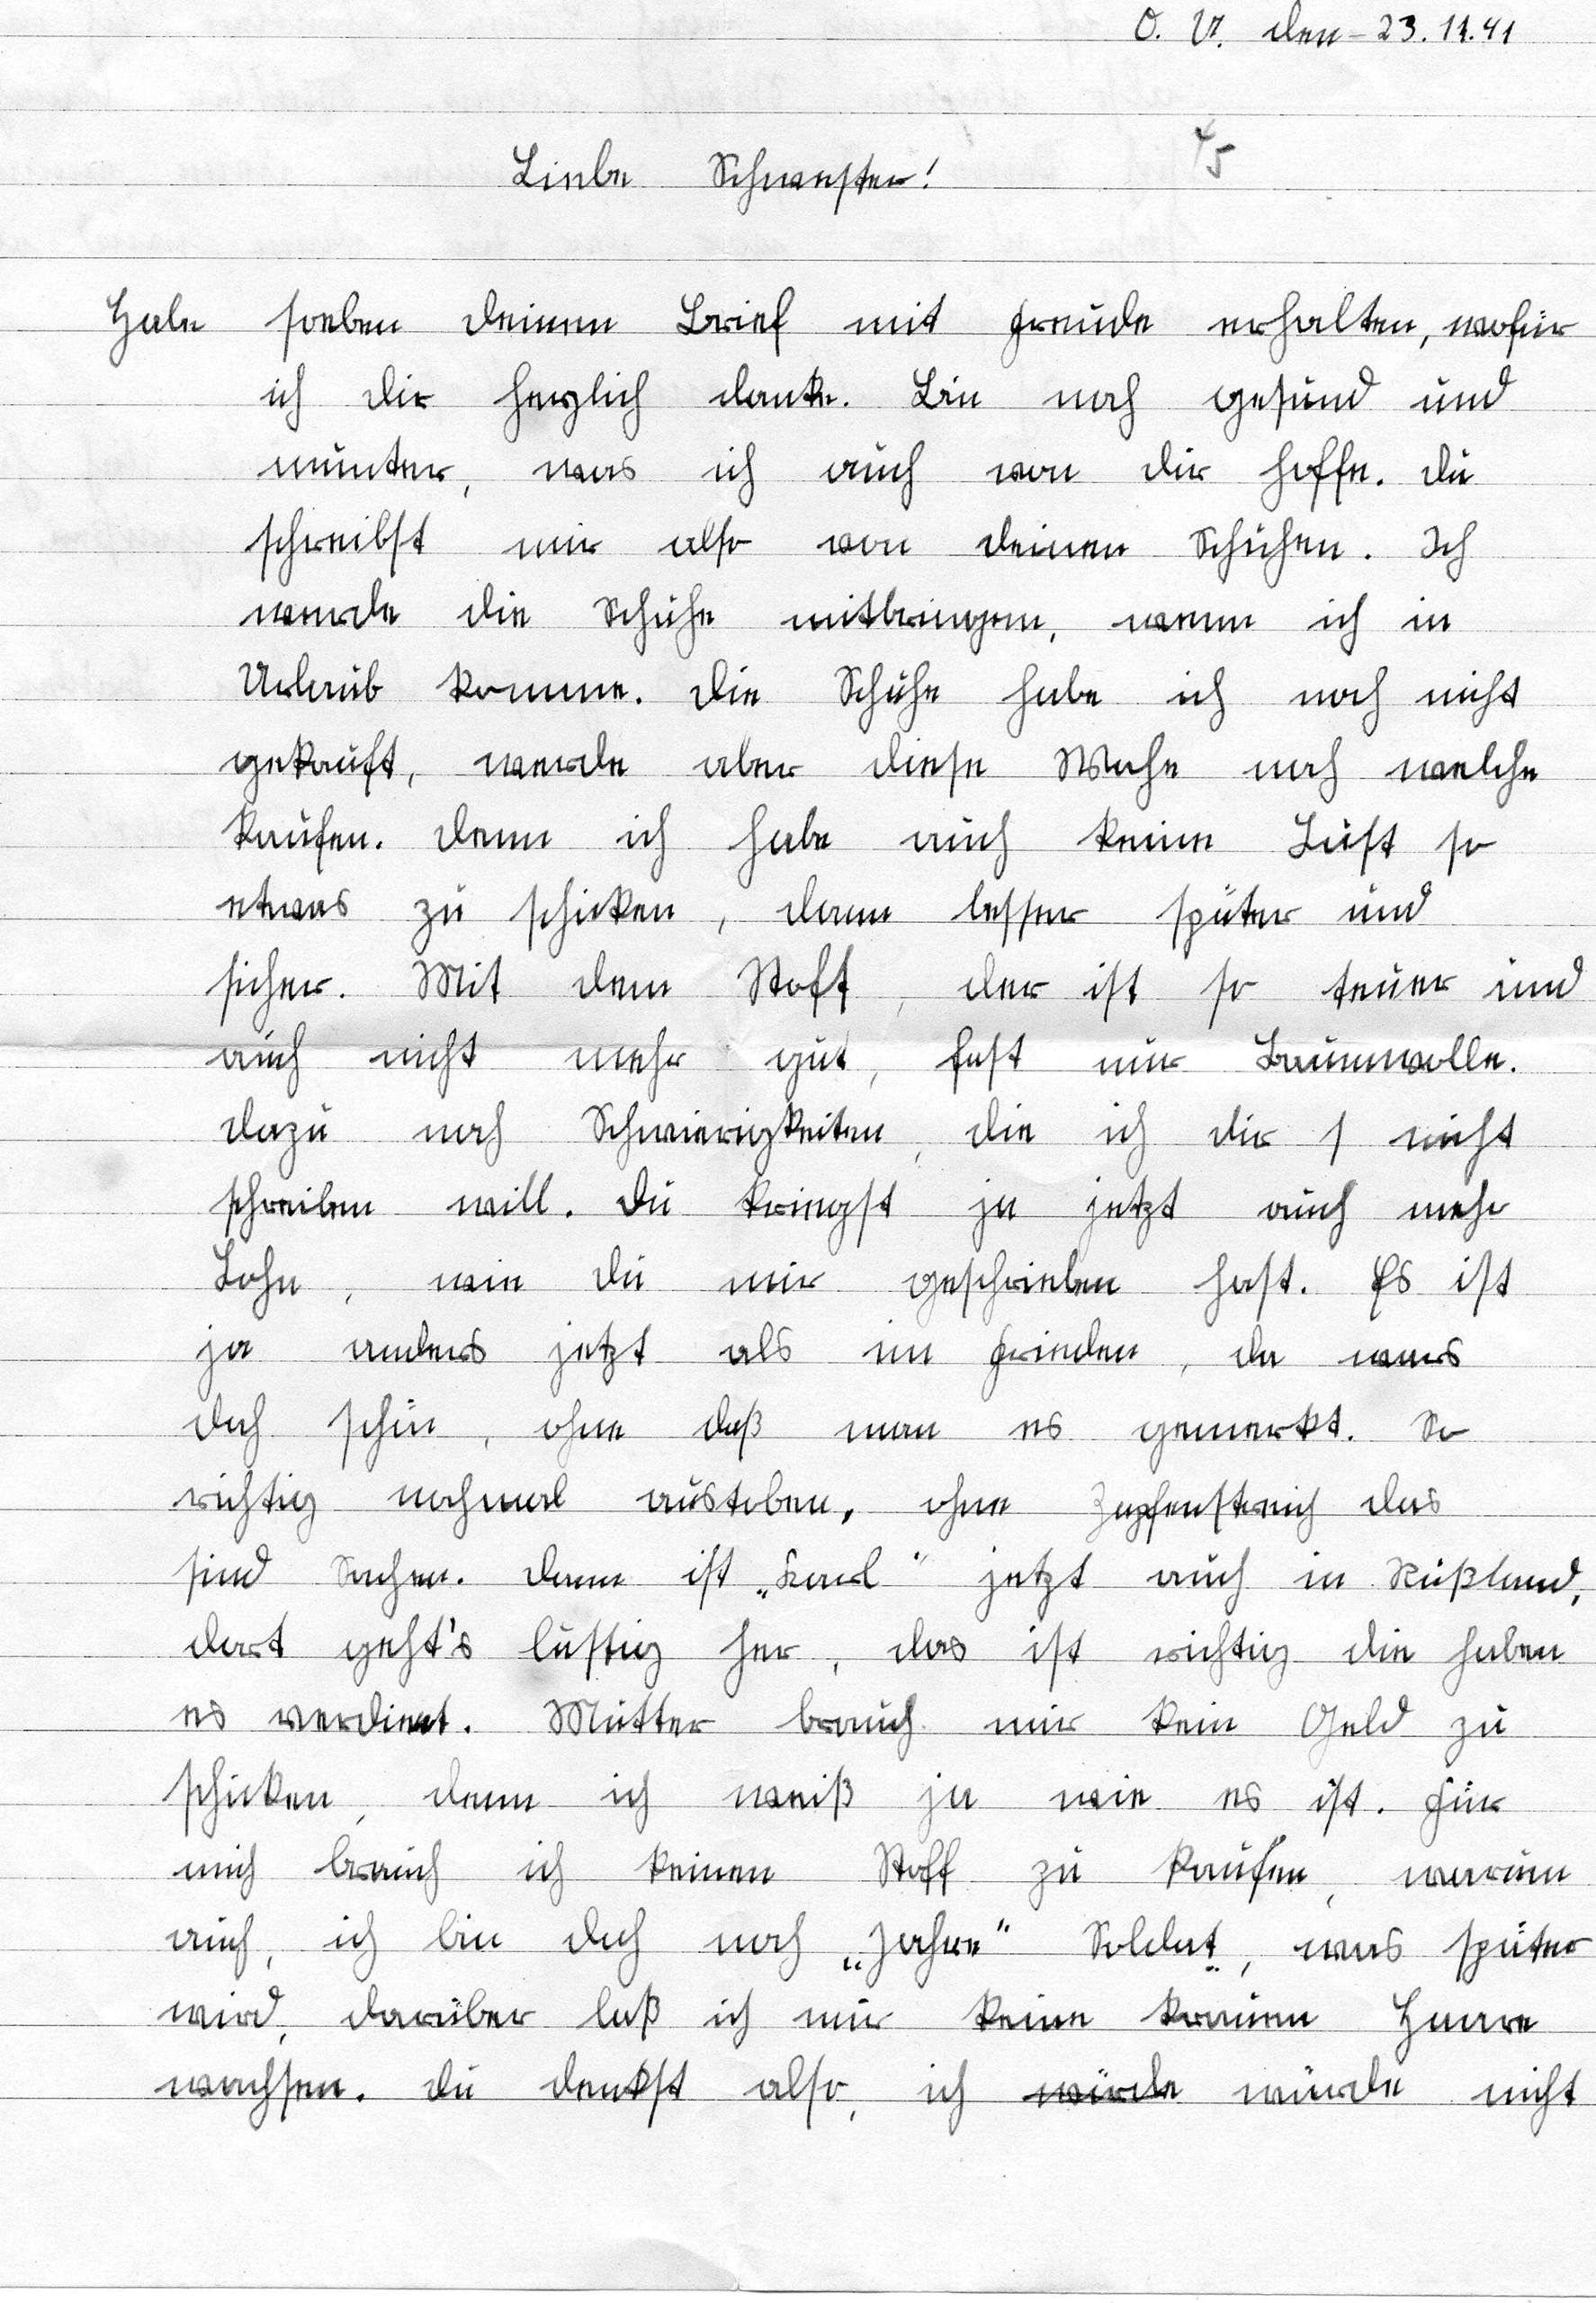 O. U. den 23.11.41
45
Liebe Schwester!
Habe soeben deinen Brief mit Freude erhalten, wofür
ich dir herzlich danke. Bin noch gesund und
munter, was ich auch von dir hoffe. Du
schreibst mir also von deinen Schuhen. Ich
werde die Schuhe mitbringen, wenn ich in
Urlaub komme. Die Schuhe habe ich noch nicht
gekauft, werde aber diese Woche noch welche
kaufen. Denn ich habe auch keine Lust so
etwas zu schicken, dann besser später und
sicher. Mit dem Stoff, der ist so teuer und
auch nicht mehr gut, fast nur Baumwolle.
Dazu noch Schwierigkeiten, die ich dir nicht
schreiben will. Du kriegst ja jetzt auch mehr
Lohn, wie du mir geschrieben hast. Es ist
ja anders jetzt als im Frieden, da wars
doch schön, ohne daß man es gemerkt. So
richtig nochmal austoben, ohne Zapfenstreich das
sind Sachen. Dann ist „Karl“ jetzt auch in Rußland,
dort geht's lustig her, das ist richtig die haben
es verdient. Mutter brauch mir kein Geld zu
schicken, denn ich weiß ja wie es ist. Für
mich brauch ich keinen Stoff zu kaufen, warum
auch, ich bin doch noch „Jahre“ Soldat, was später
wird, darüber laß ich mir keine krauen Haare
wachsen. Du denkst also, ich würde würde nicht